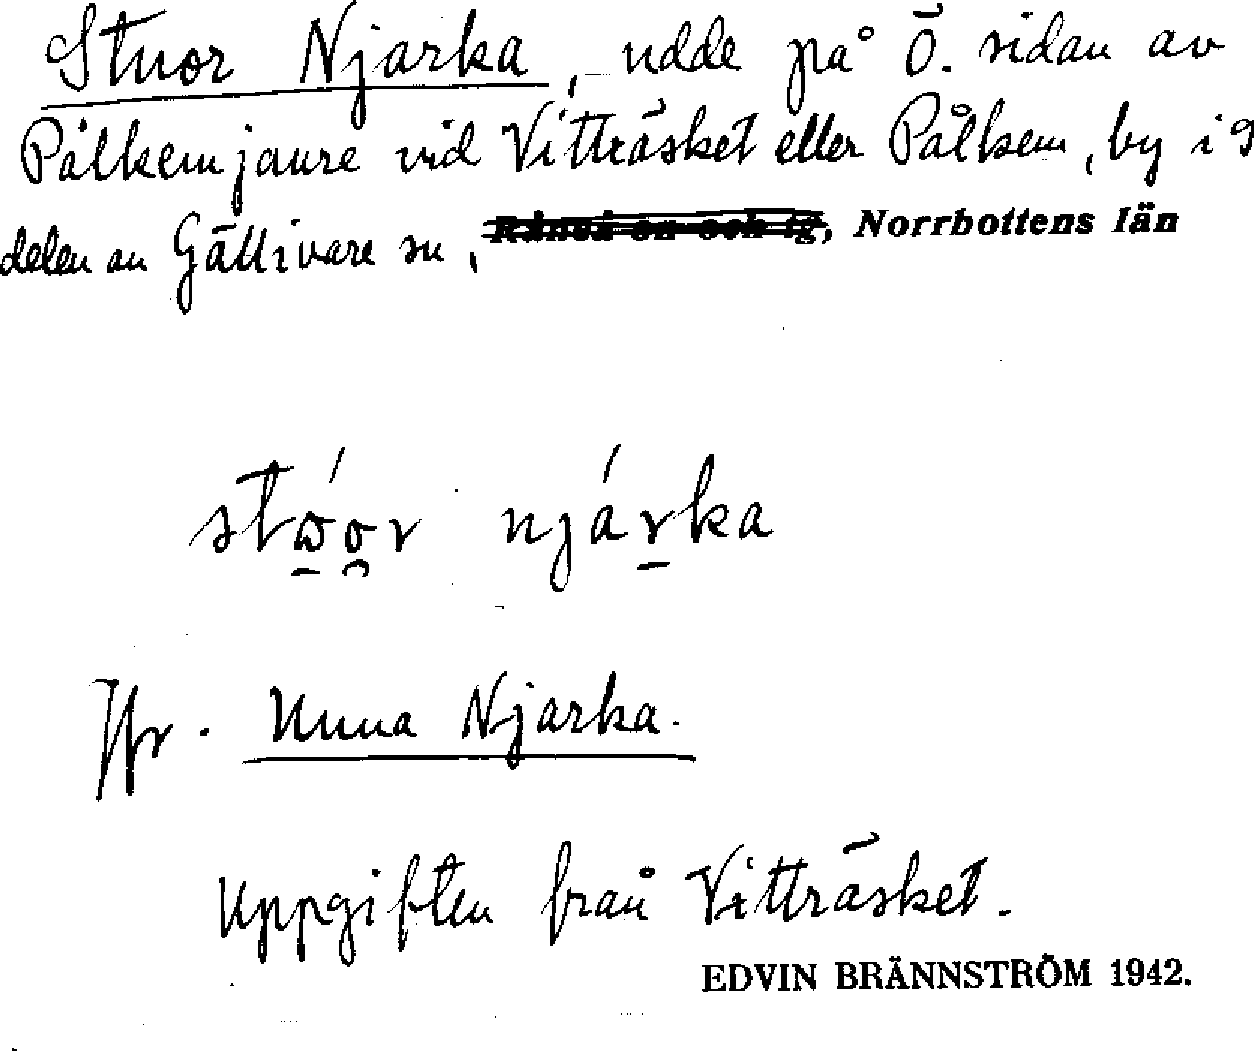 Stuor Njarka, udde på ö. sidan av
Pålkemjaure vid Vitträsket eller Pålkem, by i
delen av Gällivare sn, Råneå sn och tg, Norrbottens län
stώ̱o̯r njárka
Jfr. Unna Njarka.
Uppgiften från Vitträsket.
EDVIN BRÄNNSTRÖM 1942.